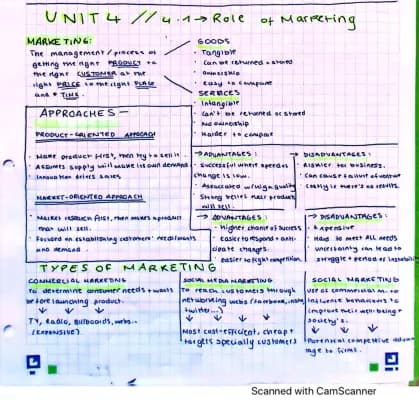 UNIT 4 // 4.1 → Role of Marketing
MARKETING:
The management/process of
getting the right PRODUCT to
the right CUSTOMER at the
right PRICE in the right PLACE
and TIME.
GOODS
Tangible
Can be returned + stored
Ownership
Easy to compare
SERVICES
Intangible
Can't be returned or stored
No ownership
Harder to compare
APPROACHES —
PRODUCT-ORIENTED APPROACH
Make product first, then try to sell it.
Assumes supply will make its own demand.
Innovation drives sales
ADVANTAGES:
Successful where speed of
change is low.
Associated w/ high quality
Strong belief that product
will sell.
DISADVANTAGES:
Riskier for business.
Can cause failure of venture
MARKET-ORIENTED APPROACH
Market research first, then makes a product
that will sell.
Focused on establishing customers'
and demand.
ADVANTAGES:
Higher chance of success
easier to respond + anti-
cipate changes.
easier to fight competition.
DISADVANTAGES:
Expensive
Hard to meet ALL needs
uncertainty can lead to
struggle + period of instability
TYPES OF MARKETING
COMMERCIAL MARKETING
To determine consumer needs + wants
before launching product.
TV, Radio, Billboards, webs...
(EXPENSIVE)
SOCIAL MEDIA MARKETING
To reach customers through
networking webs (facebook, insta,
twitter...)
Most cost-efficient, cheap +
targets specially customers
SOCIAL MARKETING
Use of commercial m. to
influence behaviours to
improve their well-being +
society's.
Potential competitive advan-
tage to firms.
Scanned with CamScanner